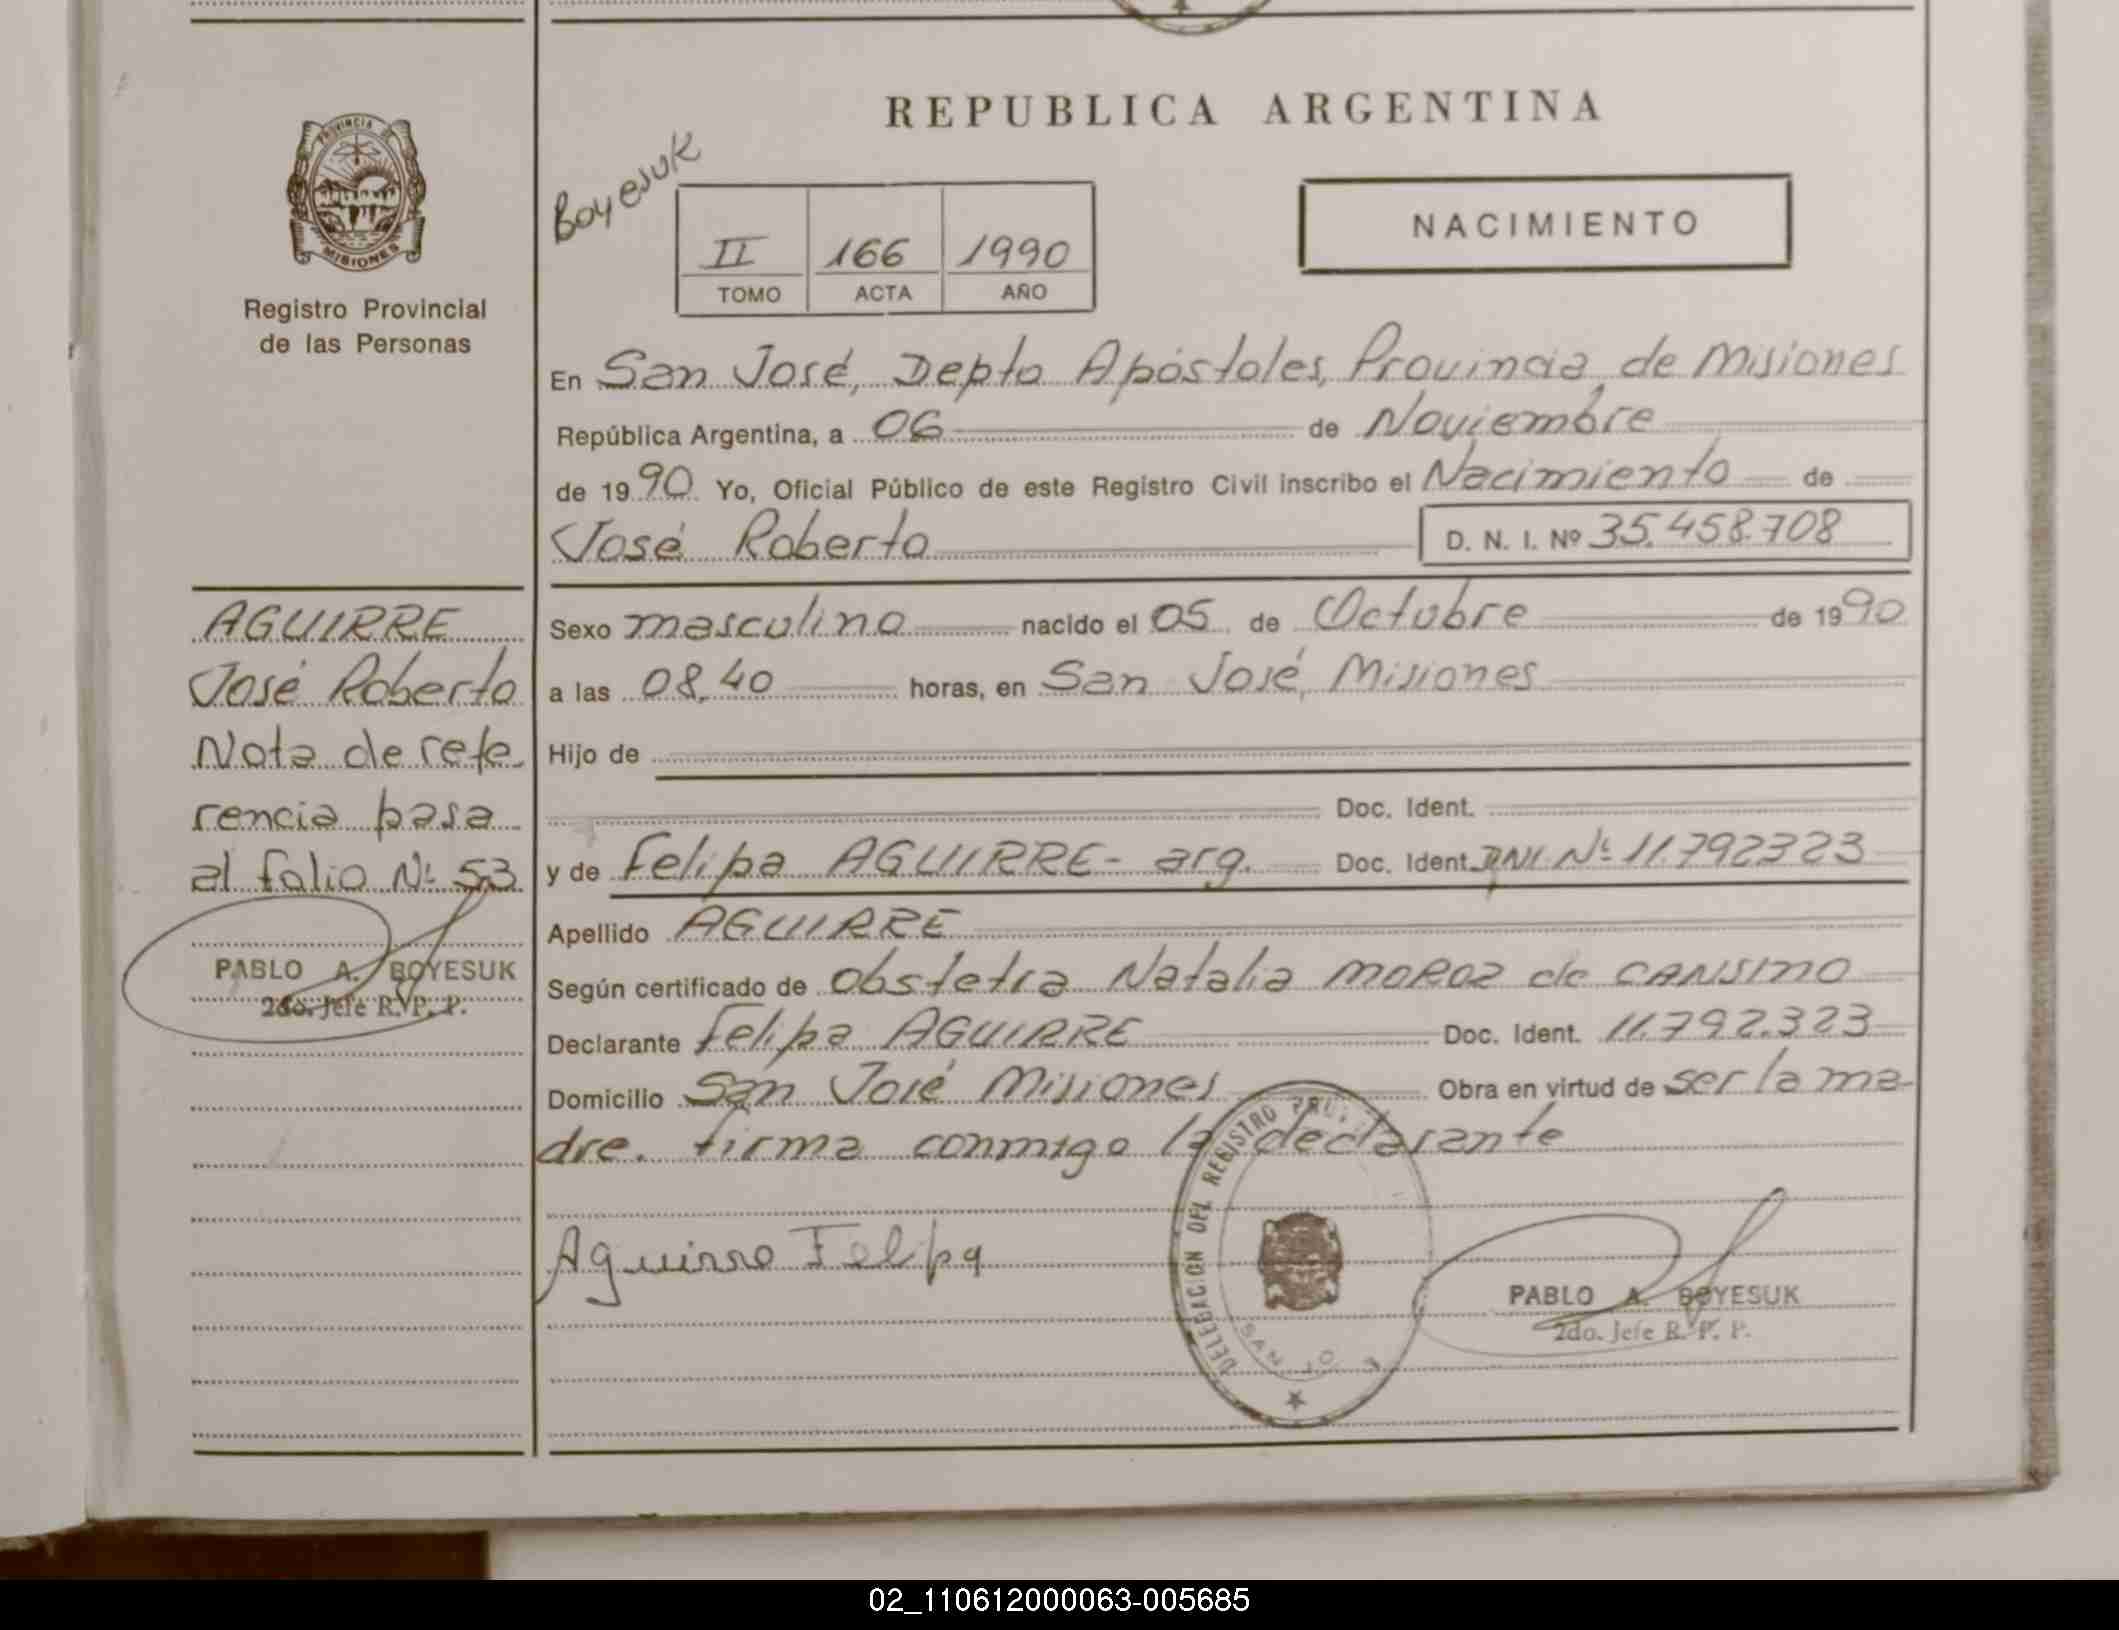 REPUBLICA ARGENTINA
PROVINCIA DE
MISIONES
Registro Provincial
de las Personas
Boyesuk
II 166 1990
TOMO ACTA AÑO
NACIMIENTO
En San José, Depto Apóstoles, Provincia de Misiones
República Argentina, a 06 de Noviembre
de 1990 Yo, Oficial Público de este Registro Civil inscribo el Nacimiento de
José Roberto D. N. I. Nº 35.458.708
AGUIRRE
José Roberto
Nota de refe
rencia pasa
al folio Nº 53
PABLO A. BOYESUK
2do. Jefe R. P. P.
Sexo masculino nacido el 05 de Octubre de 1990
a las 08,40 horas, en San José, Misiones
Hijo de
Doc. Ident.
y de Felipa AGUIRRE - arg. Doc. Ident. DNI. Nº 11.792323
Apellido AGUIRRE
Según certificado de Obstetra Natalia MOROZ de CANSINO
Declarante Felipa AGUIRRE Doc. Ident. 11.792.323
Domicilio San José Misiones Obra en virtud de ser la ma-
dre. firma conmigo la declarante
Aguirre Felipa
DELEGACION DEL REGISTRO
SAN JO
PABLO A. BOYESUK
2do. Jefe R. P. P.
02_110612000063-005685